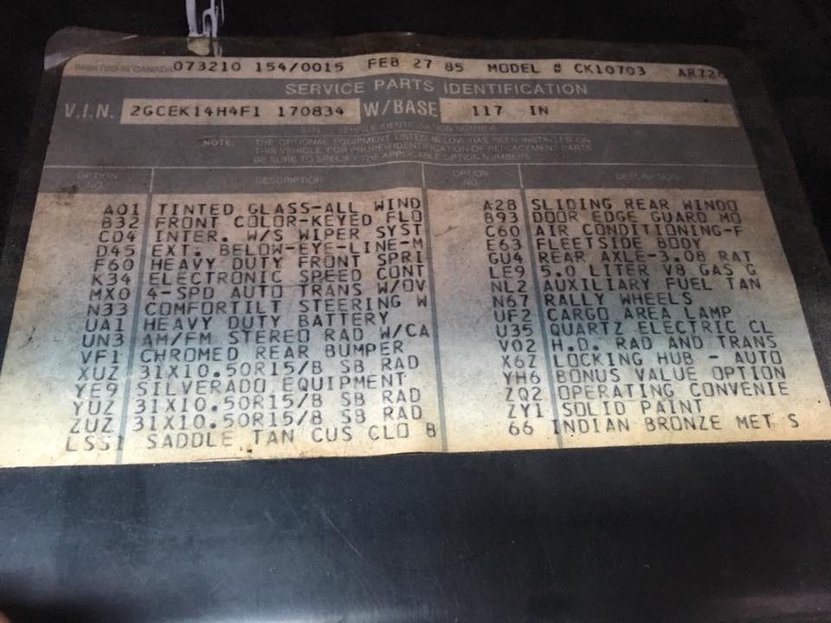 PRINTED IN CANADA 073210 154/0015 FEB 27 85 MODEL # CK10703 AR72
SERVICE PARTS IDENTIFICATION
V.I.N. 2GCEK14H4F1 170834 W/BASE 117 IN
VEHICLE IDENTIFICATION NUMBER
NOTE: THE OPTIONAL EQUIPMENT LISTED BELOW HAS BEEN INSTALLED ON
THIS VEHICLE FOR PROPER IDENTIFICATION OF REPLACEMENT PARTS
BE SURE TO SPECIFY THE APPLICABLE OPTION NUMBERS.
OPTION NO. DESCRIPTION OPTION NO. DESCRIPTION
A01 TINTED GLASS-ALL WIND A28 SLIDING REAR WINDO
B32 FRONT COLOR-KEYED FLO B93 DOOR EDGE GUARD MO
CD4 INTER. W/S WIPER SYST C60 AIR CONDITIONING-F
D45 EXT. BELOW-EYE-LINE-M E63 FLEETSIDE BODY
F60 HEAVY DUTY FRONT SPRI GU4 REAR AXLE-3.08 RAT
K34 ELECTRONIC SPEED CONT LE9 5.0 LITER V8 GAS G
MX0 4-SPD AUTO TRANS W/OV NL2 AUXILIARY FUEL TAN
N33 COMFORTILT STEERING W N67 RALLY WHEELS
UA1 HEAVY DUTY BATTERY UF2 CARGO AREA LAMP
UN3 AM/FM STEREO RAD W/CA U35 QUARTZ ELECTRIC CL
VF1 CHROMED REAR BUMPER V02 H.D. RAD AND TRANS
XUZ 31X10.50R15/B SB RAD X6Z LOCKING HUB - AUTO
YE9 SILVERADO EQUIPMENT YH6 BONUS VALUE OPTION
YUZ 31X10.50R15/B SB RAD ZQ2 OPERATING CONVENIE
ZUZ 31X10.50R15/B SB RAD ZY1 SOLID PAINT
SS1 SADDLE TAN CUS CLO B 66 INDIAN BRONZE MET S